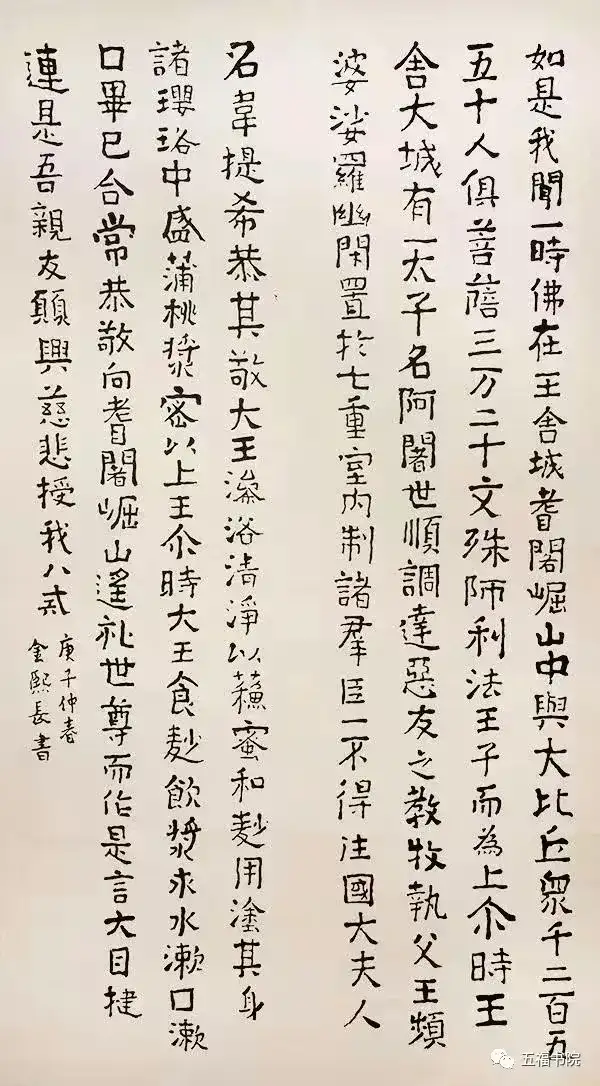 如是我聞一時佛在王舍城耆闍崛山中與大比丘眾千二百五
五十人俱菩薩三万二十文殊師利法王子而為上尒時王
舍大城有一太子名阿闍世順調達惡友之教牧執父王頻
婆娑羅幽閑置於七重室内制諸羣臣一不得往國大夫人
名韋提希恭其敬大王澡浴清淨以蘓蜜和麨用塗其身
諸瓔珞中盛蒲桃漿密以上王尒時大王食麨飲漿求水漱口漱
口畢已合常恭敬向耆闍崛山遥礼世尊而作是言大目揵
連是吾親友願興慈悲授我八戒
庚子仲春
金熙長書
五福书院